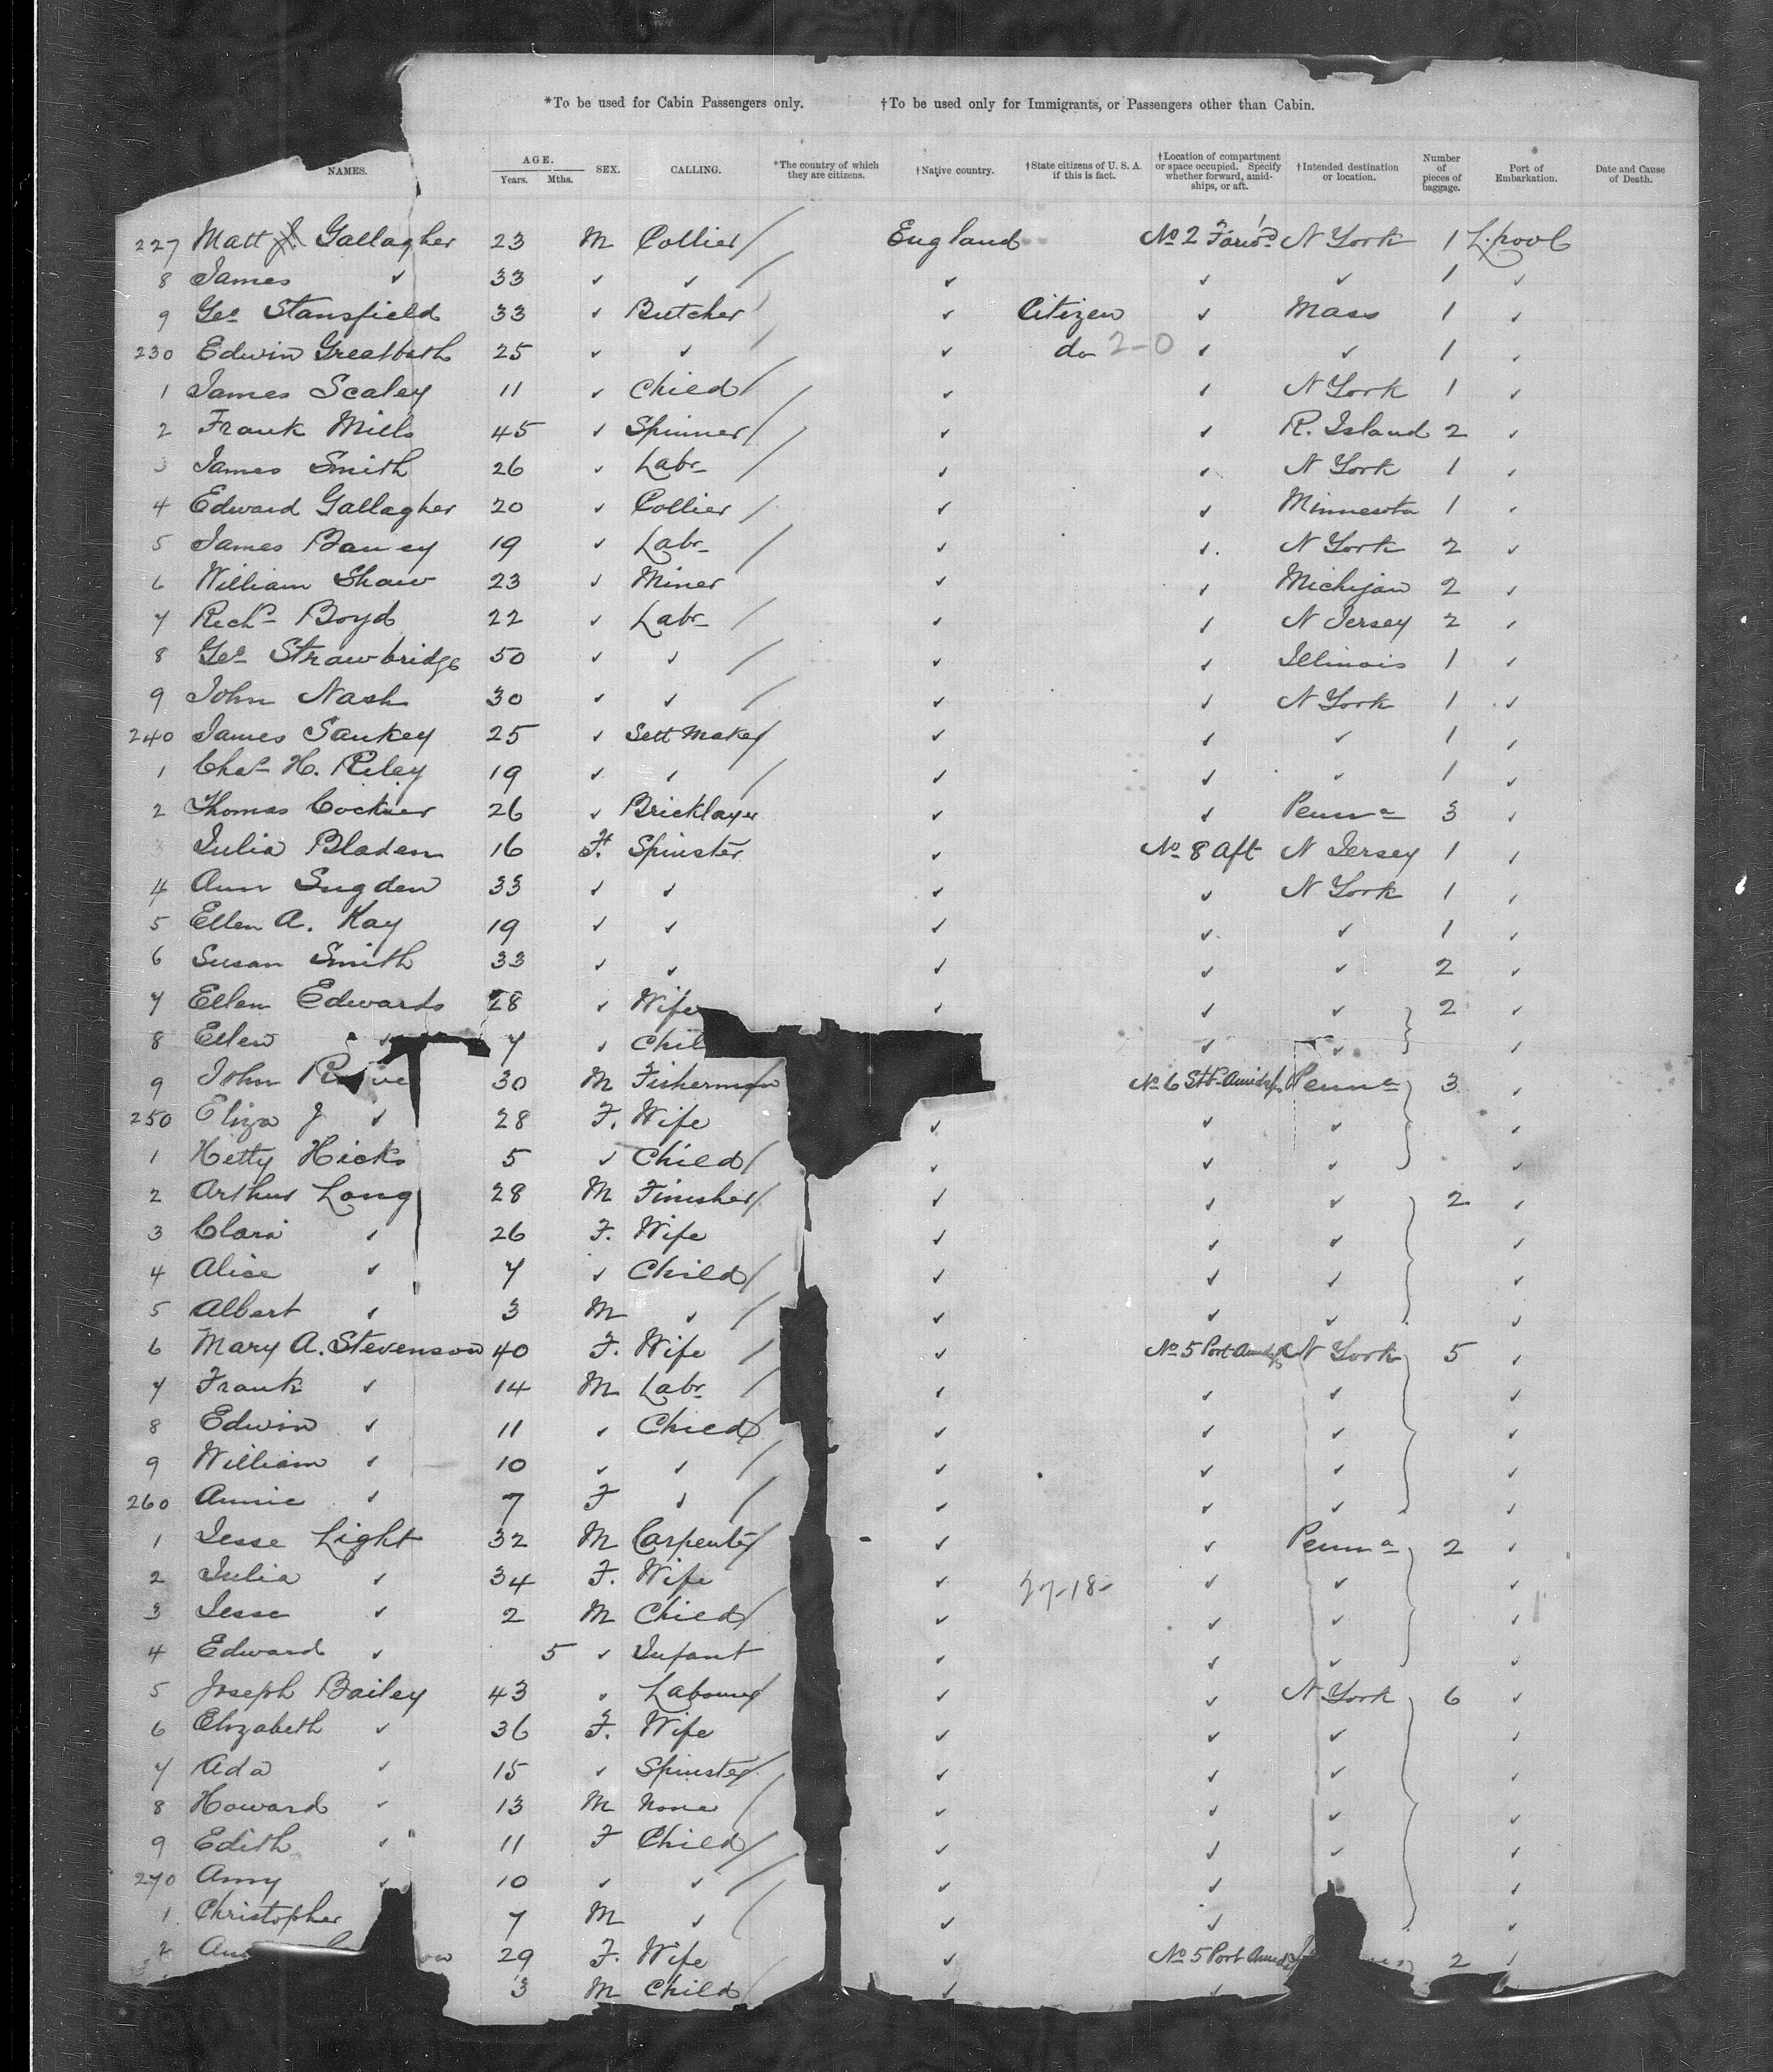 *To be used for Cabin Passengers only. †To be used only for Immigrants, or Passengers other than Cabin.
NAMES. AGE. Years. Mths. SEX. CALLING. *The country of which they are citizens. †Native country. †State citizens of U. S. A. if this is fact. †Location of compartment or space occupied. Specify whether forward, amidships, or aft. †Intended destination or location. Number of pieces of baggage. Port of Embarkation. Date and Cause of Death.
227 Matt Gallagher 23 M Collier / England No 2 Forwd N York 1 L.pool
8 James ✓ 33 ✓ ✓ / ✓ ✓ ✓ 1 ✓
9 Geo Stansfield 33 ✓ Butcher / ✓ Citizen ✓ Mass 1 ✓
230 Edwin Greatbath 25 ✓ ✓ / ✓ do 2-0 ✓ ✓ 1 ✓
1 James Scaley 11 ✓ Child / ✓ ✓ N York 1 ✓
2 Frank Mills 45 ✓ Spinner / ✓ ✓ R. Island 2 ✓
3 James Smith 26 ✓ Labr / ✓ ✓ N York 1 ✓
4 Edward Gallagher 20 ✓ Collier / ✓ ✓ Minnesota 1 ✓
5 James 19 ✓ Labr / ✓ ✓ N York 2 ✓
6 William Shaw 23 ✓ Miner ✓ ✓ Michigan 2 ✓
7 Richd Boyd 22 ✓ Labr / ✓ ✓ N Jersey 2 ✓
8 Geo Strawbridge 50 ✓ ✓ / ✓ ✓ Illinois 1 ✓
9 John Nash 30 ✓ ✓ / ✓ ✓ N York 1 ✓
240 James Sankey 25 ✓ Sett Maker / ✓ ✓ ✓ 1 ✓
1 Chas H. Riley 19 ✓ ✓ / ✓ ✓ ✓ 1 ✓
2 Thomas Cockier 26 ✓ Bricklayer ✓ ✓ Penna 3 ✓
3 Julia Bladen 16 F. Spinster ✓ No 8 Aft N Jersey 1 ✓
4 Ann Sugden 33 ✓ ✓ ✓ ✓ N York 1 ✓
5 Ellen A. Kay 19 ✓ ✓ ✓ ✓ ✓ 1 ✓
6 Susan Smith 33 ✓ ✓ ✓ ✓ ✓ 2 ✓
7 Ellen Edwards 28 ✓ Wife ✓ ✓ ✓ 2 ✓
8 Ellen ✓ 7 ✓ Chil ✓ ✓ ✓
9 John 30 M Fisherman No 6 Stb Amidsps Penna 3 ✓
250 Eliza J ✓ 28 F. Wife ✓ ✓ ✓ ✓
1 Hetty Hicks 5 ✓ Child / ✓ ✓ ✓ ✓
2 Arthur Long 28 M Finisher / ✓ ✓ ✓ 2 ✓
3 Clara ✓ 26 F. Wife ✓ ✓ ✓ ✓
4 Alice ✓ 7 ✓ Child / ✓ ✓ ✓ ✓
5 Albert ✓ 3 M ✓ / ✓ ✓ ✓ ✓
6 Mary A. Stevenson 40 F. Wife / ✓ No 5 Port Amidsps N York 5 ✓
7 Frank ✓ 14 M Labr / ✓ ✓ ✓ ✓
8 Edwin ✓ 11 ✓ Child / ✓ ✓ ✓ ✓
9 William ✓ 10 ✓ ✓ / ✓ ✓ ✓ ✓
260 Annie ✓ 7 F ✓ / ✓ ✓ ✓ ✓
1 Jesse Light 32 M Carpenter / ✓ ✓ Penna 2 ✓
2 Julia ✓ 34 F. Wife ✓ 27-18- ✓ ✓ ✓
3 Jesse ✓ 2 M Child / ✓ ✓ ✓ ✓
4 Edward ✓ 5 ✓ Infant ✓ ✓ ✓ ✓
5 Joseph Bailey 43 ✓ Labourer / ✓ ✓ N York 6 ✓
6 Elizabeth ✓ 36 F. Wife ✓ ✓ ✓ ✓
7 Ada ✓ 15 ✓ Spinster / ✓ ✓ ✓ ✓
8 Howard ✓ 13 M None / ✓ ✓ ✓ ✓
9 Edith ✓ 11 F Child / ✓ ✓ ✓ ✓
270 Amy ✓ 10 ✓ ✓ / ✓ ✓ ✓
1 Christopher 7 M ✓ / ✓ ✓ ✓
2 29 F. Wife ✓ No 5 Port Amidsps 2 ✓
3 M Child / ✓ ✓